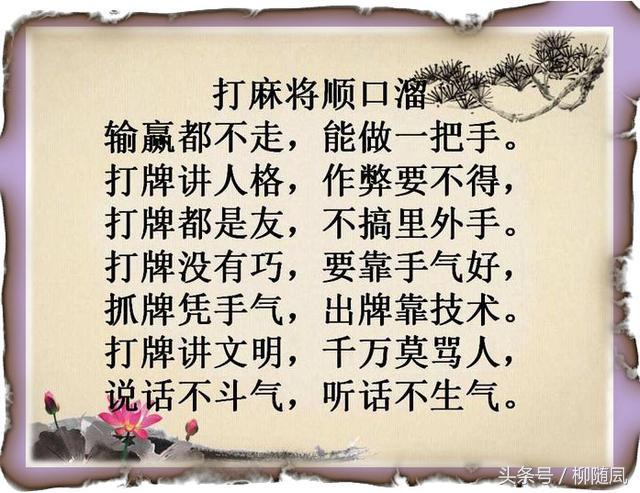 打麻将顺口溜
输赢都不走，能做一把手。
打牌讲人格，作弊要不得，
打牌都是友，不搞里外手。
打牌没有巧，要靠手气好，
抓牌凭手气，出牌靠技术。
打牌讲文明，千万莫骂人，
说话不斗气，听话不生气。
头条号 / 柳随凮